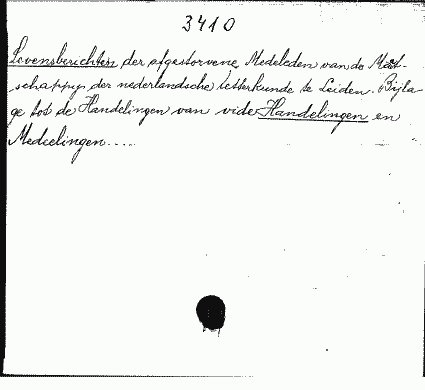 3410
Levensberichten der afgestorvene Medeleden van de Maat-
schappy der nederlandsche letterkunde te Leiden. Bijla-
ge tot de Handelingen van vide Handelingen en
Medeelingen....